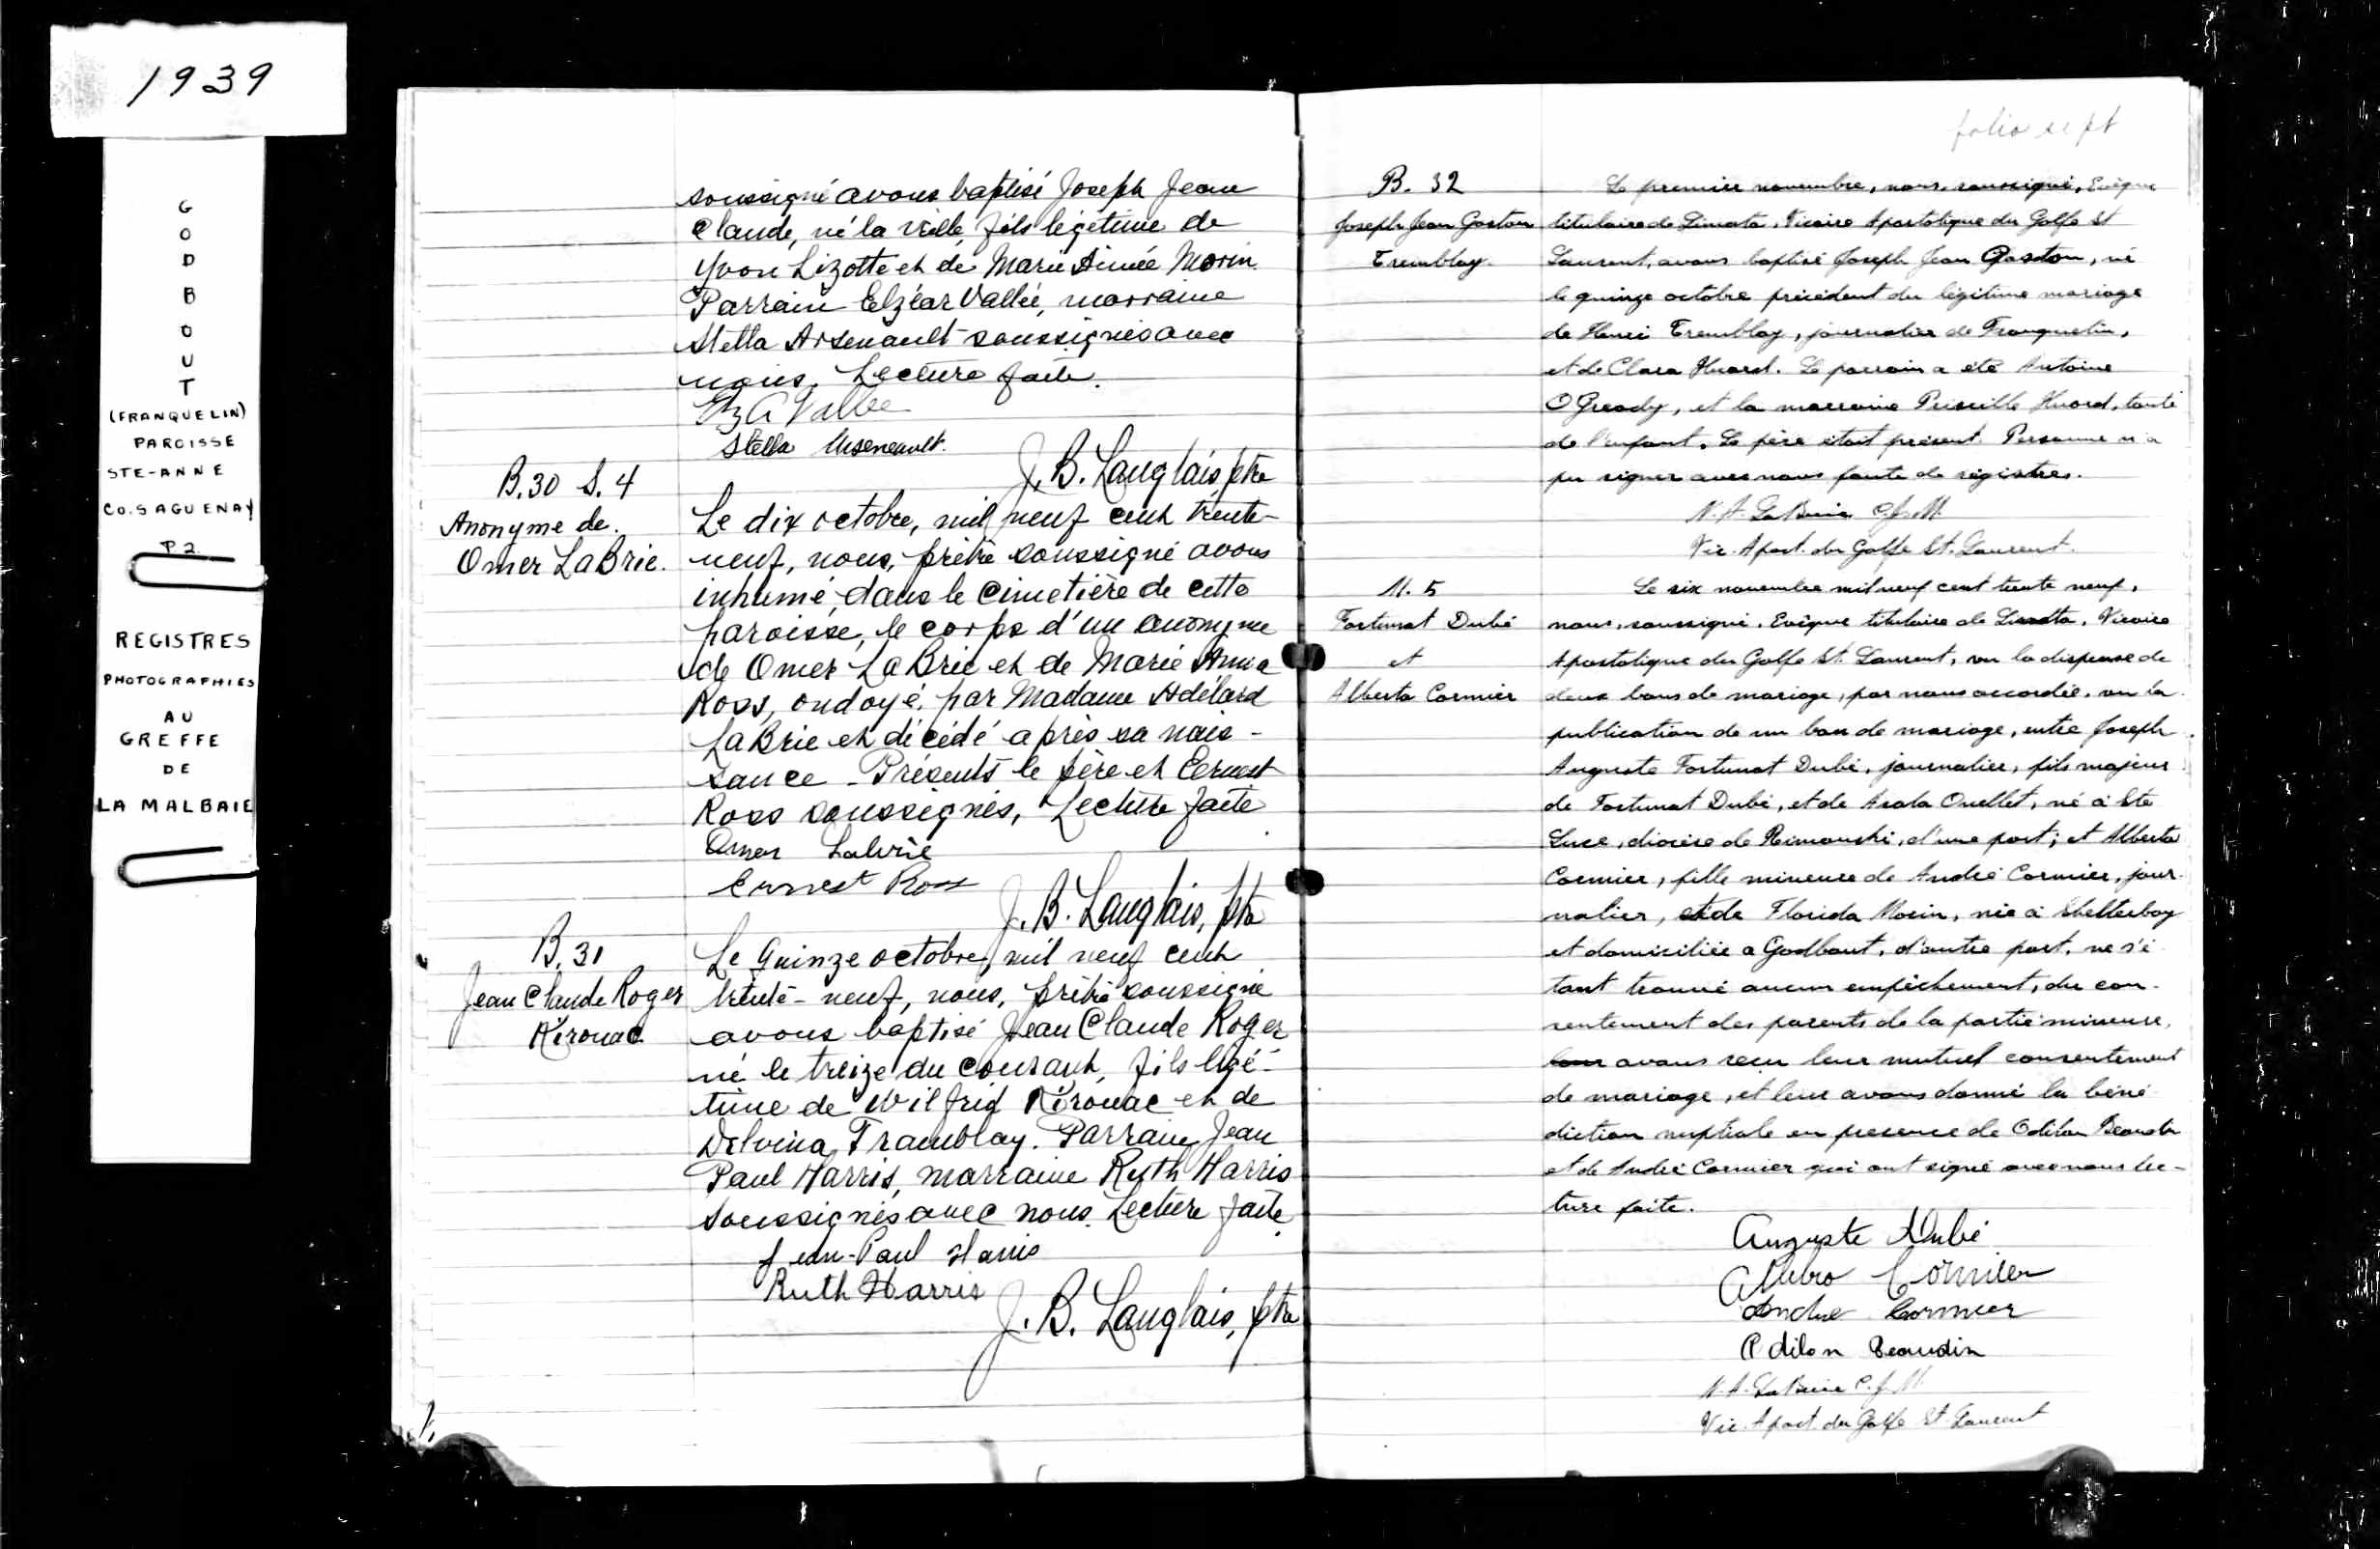 1939
G
O
D
B
O
U
T
(FRANQUELIN)
PAROISSE
STE-ANNE
CO. SAGUENAY
P2
REGISTRES
PHOTOGRAPHIES
AU
GREFFE
DE
LA MALBAIE
soussigné avons baptisé Joseph Jean
Claude, né la veille, fils légitime de
Yvon Lizotte et de Marie Aimée Morin.
Parrain Elzéar Vallée, marraine
Stella Arsenault soussignés avec
nous. Lecture faite.
Vallée
Stella Arseneault.
J. B. Langlais, ptre
B.30 S.4
Anonyme de
Omer LaBrie.
Le dix octobre, mil neuf cent trente-
neuf, nous, prêtre soussigné avons
inhumé, dans le cimetière de cette
paroisse, le corps d'un anonyme
de Omer LaBrie et de Marie Anna
Ross, ondoyé par Madame Adélard
LaBrie et décédé après sa nais-
sance - Présents le père et Ernest
Ross soussignés, Lecture faite
Omer Labrie
Ernest Ross
J. B. Langlais, ptre
B. 31
Jean Claude Roger
Kérouac
Le quinze octobre, mil neuf cent
trente-neuf, nous, prêtre soussigné
avons baptisé Jean Claude Roger
né le treize du courant, fils légi-
time de Wilfrid Kérouac et de
Delvina Tramblay. Parrain Jean
Paul Harris, marraine Ruth Harris
soussignés avec nous. Lecture faite
Jean-Paul Harris
Ruth Harris
J. B. Langlais, ptre
folio sept
B. 32
Joseph Jean Gaston
Tremblay.
Le premier novembre, nous, soussigné, Evêque
titulaire de Limata, Vicaire Apostolique du Golfe St
Laurent, avons baptisé Joseph Jean Gaston, né
le quinze octobre précédent du légitime mariage
de Henri Tremblay, journalier de Franquelin,
et de Clara Huard. Le parrain a été Antoine
O'Gready, et la marraine Priscille Huard, tante
de l'enfant. Le père était présent. Personne n'a
pu signer avec nous faute de régistres.
N. A. LaBrie c.j.m.
Vic. Apost. du Golfe St. Laurent.
M. 5
Fortunat Dubé
et
Alberta Cormier
Le six novembre mil neuf cent trente neuf,
nous, soussigné, Evêque titulaire de Limata, Vicaire
Apostolique du Golfe St. Laurent, vu la dispense de
deux bans de mariage, par nous accordée, vu la
publication de un ban de mariage, entre Joseph
Auguste Fortunat Dubé, journalier, fils majeur
de Fortunat Dubé, et de Ouellet, né à Ste
Luce, diocèse de Rimouski, d'une part; et Alberta
Cormier, fille mineure de André Cormier, jour-
nalier, et de Florida Morin, née à Shelterbay
et domiciliée a Godbout, d'autre part, ne s'é-
tant trouvé aucun empêchement, du con-
sentement des parents de la partie mineure,
avons reçu leur mutuel consentement
de mariage, et leur avons donné la béné-
diction nuptiale en presence de Odilon Beaudin
et de André Cormier qui ont signé avec nous lec-
ture faite.
Auguste Dubé
Cormier
Andre Cormier
Odilon Beaudin
N. A. LaBrie c.j.m.
Vic. Apost. du Golfe St. Laurent